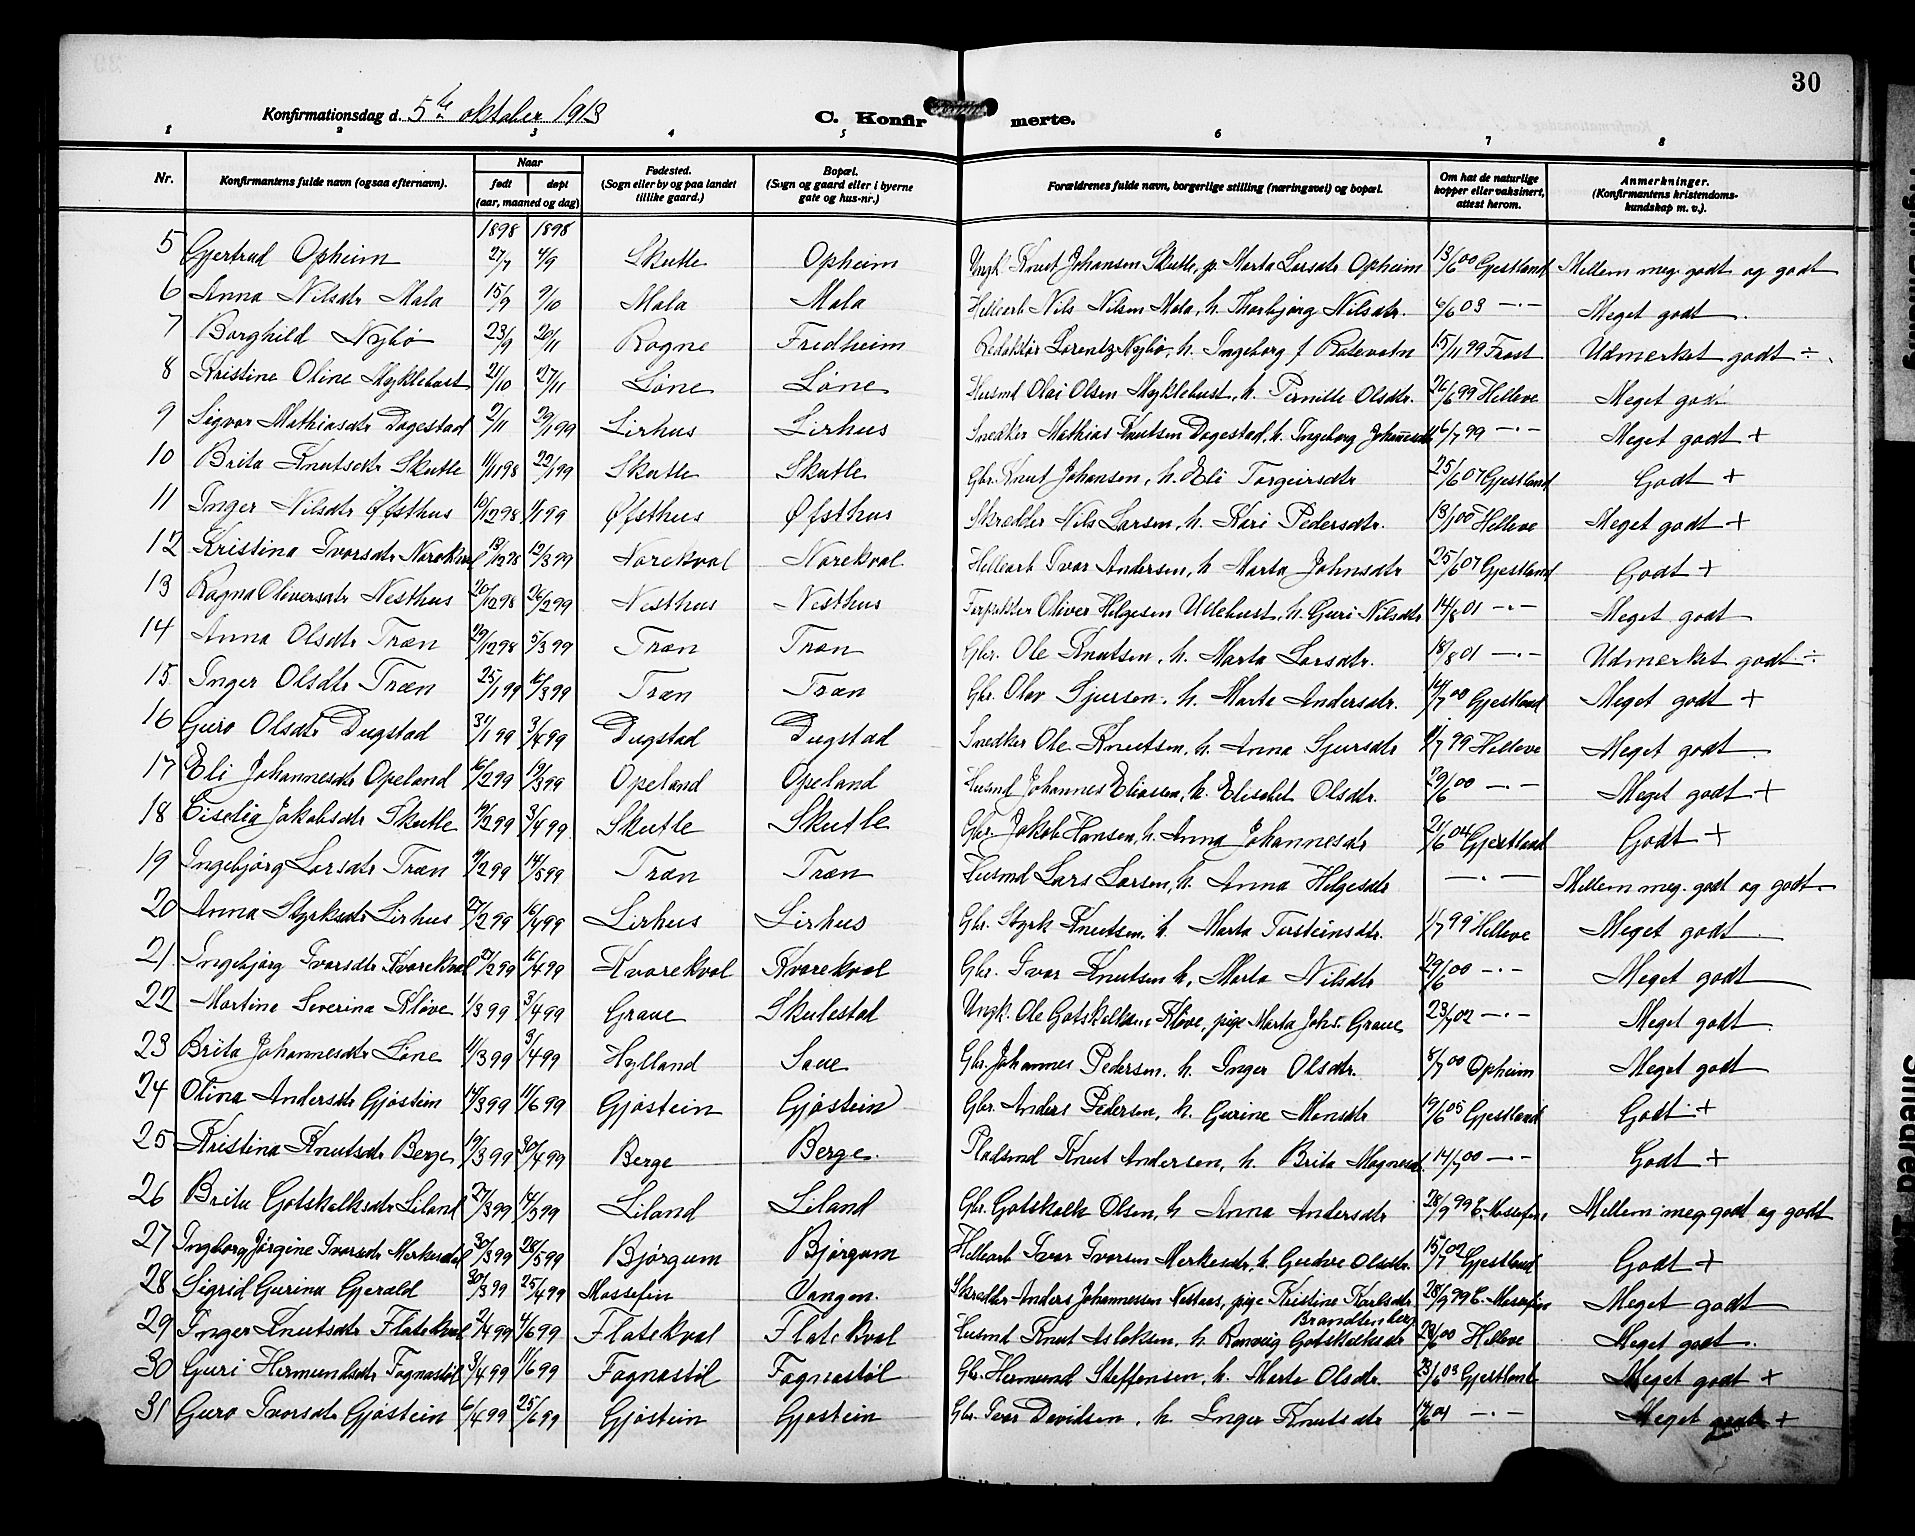 30
Konfirmationsdag d. 5te oktober 1913
C. Konfirmerte.
1 2 3 4 5 6 7 8
Nr. Konfirmantens fulde navn (ogsaa efternavn). Naar født døpt (aar, maaned og dag) Fødested. (Sogn eller by og paa landet tillike gaard.) Bopæl. (Sogn og gaard eller i byerne gate og hus-nr.) Forældrenes fulde navn, borgerlige stilling (næringsvei) og bopæl. Om hat de naturlige kopper eller vaksinert, attest herom. Anmerkninger. (Konfirmantens kristendomskundskap m. v.).
1898 1898
5 Gjertrud Opheim 27/7 4/9 Skutle Opheim Ungk. Knut Johansen Skutle, p. Marta Larsdtr Opheim 13/6 00 Gjestland Mellem meg. godt og godt
6 Anna Nilsdtr Mala 15/9 9/10 Mala Mala Hellearb Nils Nilsen Mala, h. Thorbjørg Nilsdtr. 6/6 03 —·— Meget godt.
7 Borghild Nybø 23/9 20/11 Rogne Fredheim Redaktør Lorentz Nybø, h. Ingeborg f Ratevatn 15/11 99 Frost Udmerket godt ÷.
8 Kristine Oline Myklebust 21/10 27/11 Løne Løne Husmd Olai Olsen Myklebust, h. Pernille Olsdtr. 26/6 99 Helleve Meget godt
9 Sigvor Mathiasdtr Dagestad 2/11 29/1 99 Lirhus Lirhus Snedker Mathias Knutsen Dagestad, h. Ingeborg Johannesdtr 16/7 99 —·— Meget godt +
10 Brita Knutsdtr Skutle 11/11 98 22/1 99 Skutle Skutle Gbr. Knut Johansen, h. Eli Torgeirsdtr 25/6 07 Gjestland Godt +
11 Inger Nilsdtr Øfsthus 10/12 98 1/1 99 Øfsthus Øfsthus Skrædder Nils Larsen, h. Kari Pedersdtr. 13/1 00 Helleve Meget godt +
12 Kristina Ivarsdtr Norekval 13/12 98 12/3 99 Norekval Norekval Hellearb Ivar Andersen, h Marta Johnsdtr 25/6 07 Gjestland Godt +
13 Ragna Oliversdtr Nesthus 20/12 98 26/2 99 Nesthus Nesthus Forpakter Oliver Helgesen Ullehust, h. Guri Nilsdtr 14/8 01 —·— Meget godt
14 Anna Olsdtr Træn 29/12 98 5/3 99 Træn Træn Gbr. Ole Knutsen, h. Marta Larsdtr. 18/8 01 —·— Udmerket godt ÷
15 Inger Olsdtr Træn 25/1 99 16/3 99 Træn Træn Gbr. Olav Sjursen, h. Marta Andersdtr. 14/7 00 Gjestland Meget godt +
16 Guro Olsdtr Dugstad 31/1 99 3/4 99 Dugstad Dugstad Snedker Ole Knutsen, h. Anna Sjursdtr 11/7 99 Helleve Meget godt
17 Eli Johannesdtr Opeland 16/2 99 19/3 99 Opeland Opeland Husmd Johannes Eliassen, h. Elisabet Olsdtr. 29/6 00 —·— Meget godt +
18 Jakobsdtr Skutle 19/2 99 3/4 99. Skutle Skutle Gbr. Jakob Hansen, h. Anna Johannesdtr 21/6 04 Gjestland Godt +
19 Ingebjørg Larsdtr Træn 9/2 99 14/5 99 Træn Træn Husmd Lars Larsen, h. Anna Helgesdtr —·— Mellem meg. godt og godt
20 Anna Styrksdtr Lirhus 27/2 99 16/4 99 Lirhus Lirhus Gbr. Styrk Knutsen, h. Marta Torsteinsdtr. 1/7 99 Helleve Meget godt.
21 Ingebjørg Ivarsdtr Kvarekval 27/2 99 16/4 99 Kvarekval Kvarekval Gbr. Ivar Knutsen h, Marta Nilsdtr 29/6 00 —·— Meget godt
22 Martina Severina Kløve 1/3 99 3/4 99 Graue Skulestad Ungk. Ole Gotskalksen Kløve, pige Marta Johs. Graue 23/7 02 —·— Meget godt.
23 Brita Johannesdtr Løne 11/3 99 3/4 99 Hylland Saue Gbr. Johannes Pedersen, h. Inger Olsdtr. 8/7 00 Opheim Meget godt
24 Olina Andersdtr Gjøstein 14/3 99 11/6 99 Gjøstein Gjøstein Gbr. Anders Pedersen, h. Gurine Monsdtr 19/6 05 Gjestland Godt +
25 Kristina Knutsdtr Berge 19/3 99 30/4 99 Berge Berge. Pladsmd Knut Andersen, h. Brita Magnesdt. 14/7 00 —·— Godt +
26 Brita Gotskalksdtr Liland 27/3 99 14/5 99 Liland Liland Gbr. Gotskalk Olsen, h Anna Andersdtr 28/9 99 E. Mossefin Mellem meg godt og godt
27 Ingborg Jørgine Ivarsdtr 30/3 99 28/5 99 Bjørgum Bjørgum Hellearb Ivar Ivarsen, h. Gudve Olsdtr. 15/7 02 Gjestland Godt +
28 Sigrid Gurina Gjerald 30/3 99 25/4 99 Mossefin Vangen. Skrædder Anders Johannessen Nestaas, pige Kristine Karlsdtr Brandtenberg 28/9 99 E. Mossefin Meget godt
29 Inger Knutsdtr Flatekval 2/4 99 4/6 99 Flatekval Flatekval Husmd Knut Aslaksen, h Ranveig Gotskalksdtr 28/6 00 Helleve Meget godt.
30 Guri Hermundsdtr Fagnastøl 3/4 99 11/6 99 Fagnastøl Fagnastøl Gbr. Hermund Steffensen, h. Marta Olsdtr. 23/6 03 Gjestland Meget godt +
31 Guro Ivarsdtr Gjøstein 6/4 99 25/6 99 Gjøstein Gjøstein Gbr. Ivar Davidsen, h Inger Knutsdtr 17/6 04 —·— Meget godt +